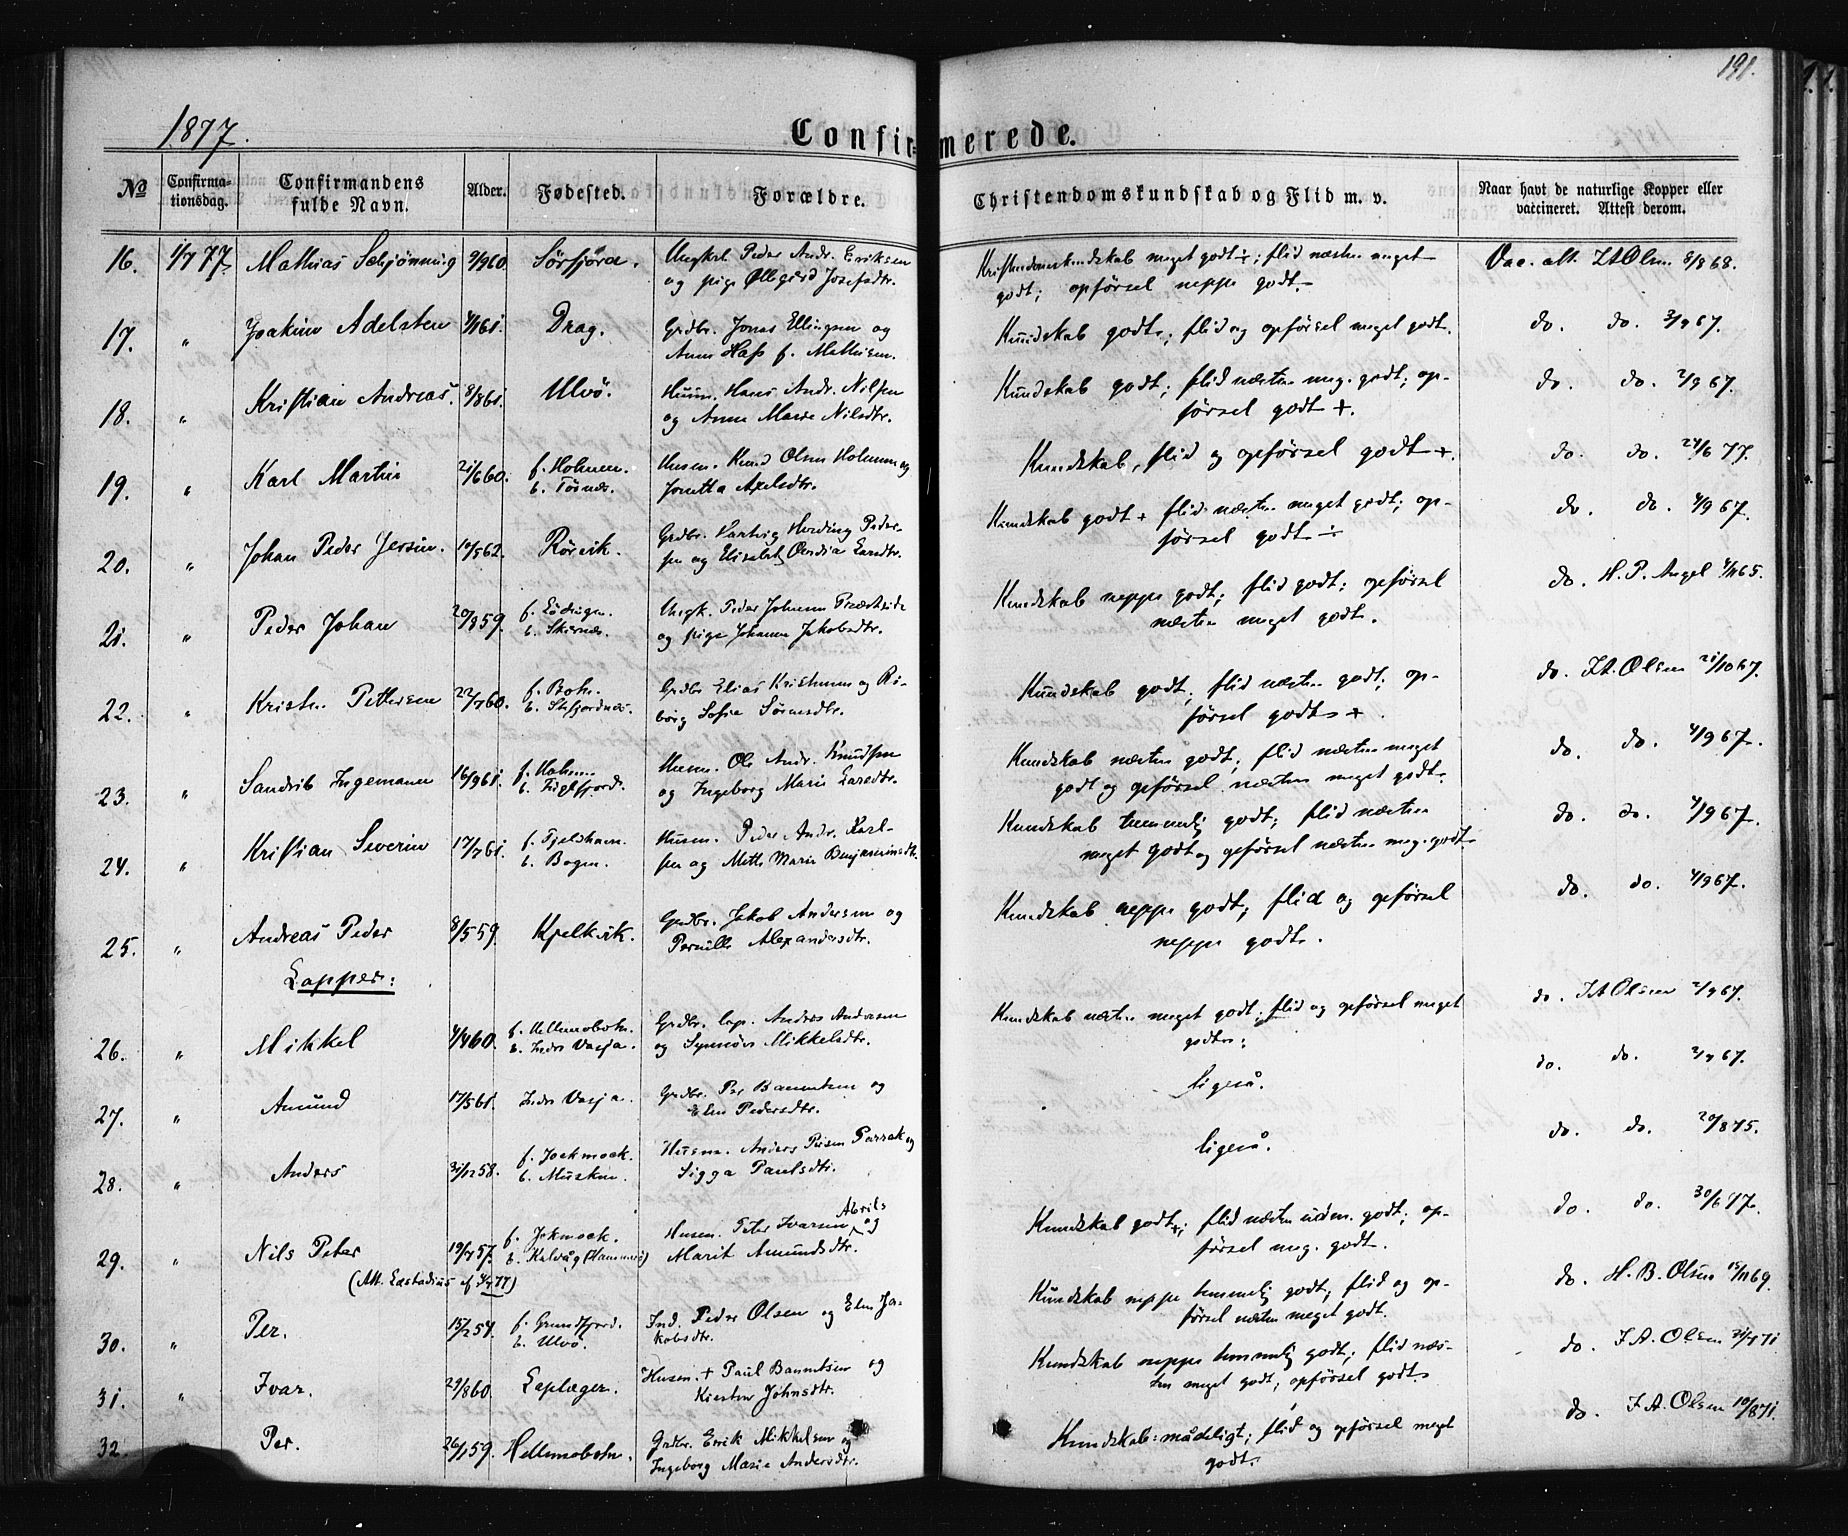 191.
1877.
Confirmerede.
No Confirmationsdag. Confirmandens fulde Navn. Alder. Fødested. Forældre. Christendomskundskab og Flid m. v. Naar havt de naturlige Kopper eller vaccineret. Attest derom.
16. 1/7 77. Mathias Schjønning 9/9 60. Sörfjora. Ungkrl Peder Andr. Eriksen
og pige Ollegård Josefsdtr. Kristendomskundskab meget godt ÷; flid næsten meget
godt; opförsel neppe godt. Vac. att. Olsen 8/8 68.
17. " Joakim Adelsten 61. Drag. Grdbr. Jonas Ellingsen og
Anna Hass f. Mathisen. Kundskab godt; flid og opförsel meget godt. do. do. 67.
18. " Kristian Andreas. 8/8 61. Ulvö. Husm. Hans Andr. Nilsen
og Anna Marie Nilsdtr. Kundskab godt; flid næsten meg. godt; op-
försel godt +. do. do. 2/9 67.
19. " Karl Martin 21/6 60. f. Holmen.
b. Tørnæs. Husm. Knud Olsen Holmen og
Jonetta Axelsdtr. Kundskab, flid og opförsel godt +. do. do. 24/6 77.
20. " Johan Peder Jessin. 10/5 62. Rörvik. Grdbr. Hartvig Hveding Peder-
sen og Elisabet Larsdtr. Kundskab godt + flid næsten meget godt; op-
försel godt ÷ do. do. 4/9 67.
21. " Peder Johan 20/8 59. f. Lödingen.
b. Skarnæs. Ungk. Peder Johnsen
og pige Johanna Jakobsdtr. Kundskab neppe godt; flid godt; opförsel
næsten meget godt. do. H. P. Angel 65.
22. " Kristen Pettersen 22/7 60. f. Botn.
b. Grdbr Elias Kristensen og Ri-
borg Sofie Sörensdtr. Kundskab godt; flid næsten godt; op-
försel godt +. do. Olsen 21/10 67.
23. " Sandrik Ingemann 16/9 61. f. Holmen
b. Husm. Ole Andr. Knudsen
og Ingeborg Marie Larsdtr. Kundskab næsten godt; flid næsten meget
godt og opförsel næsten meget godt. do. do. 4/9 67.
24. " Kristian Severin 17/7 61. f. Fjeldhavn.
b. Bogen. Husm. Peder Andr. Karl-
sen og Mette Marie Benjaminsdtr. Kundskab temmelig godt; flid næsten
meget godt og opförsel næsten meg. godt. do. do. 4/9 67.
25. " Andreas Peder 8/5 59. Kjelkvik. Grdbr. Jakob Andersen og
Pernille Alexandersdtr. Kundskab neppe godt; flid og opförsel
neppe godt. do. do. 4/9 67.
Lapper:
26. " Mikkel 60. f. Hellemobotn.
b. Indre Vasja. Grdbr. lap. Anders Andersen
og Synnöve Mikkelsdtr. Kundskab næsten meget godt; flid og opförsel meget
godt: do. Olsen 67.
27. " Amund 17/5 61. Indre Vasja. Grdbr. Per Banntsen og
Elen Pedersdtr. ligeså. do. do. 67.
28. " Anders 31/12 58. f. Jockmock.
b. Musken. Husm. Anders Persen Parrak og
Sigga Paulsdtr. ligeså. do. do. 20/8 75.
29. " Nils Peter 19/7 57. f. Jokmock.
b. Kalvåg (Hammerö) Husm. Peter Ivarsen Abrils og
Marit Amundsdtr. Kundskab godt +; flid næsten uden. godt; op-
försel meg. godt. do. do. 30/6 77.
(Att. Læstadius af 77)
30. " Per. 15/2 57. f. Grundfjord.
b. Ulvö. Ind. Peder Olsen og Elen Ja-
kobsdtr. Kundskab neppe temmelig godt; flid og op-
försel næsten meget godt. do. H. B. Olsen 69.
31. " Ivar. 29/8 60. Leplæger. Husm. + Paul Banntsen og
Kirsten Johnsdtr. Kundskab neppe temmelig godt; flid næs-
ten meget godt; opförsel godt. do. J. A. Olsen 71.
32. Per. 26/1 59. Hellemobotn. Grdbr. Erik Mikkelsen og
Ingeborg Marie Andersdtr. Kundskab: mådeligt; flid og opförsel meget
godt. do. J. A. Olsen 10/8 71.